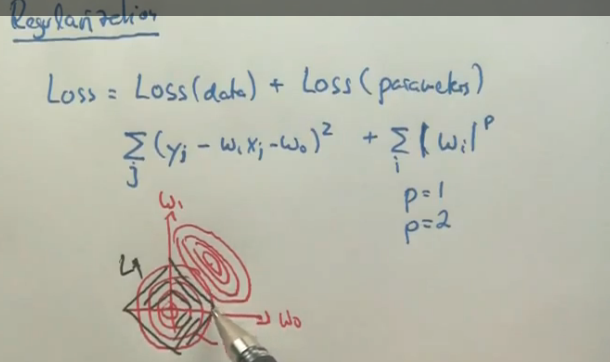 Regularization
Loss = Loss(data) + Loss(parameters)
∑j (yj - w₁xj - w₀)² + ∑i |wi|ᵖ
p=1
p=2
w₁
L1
w₀